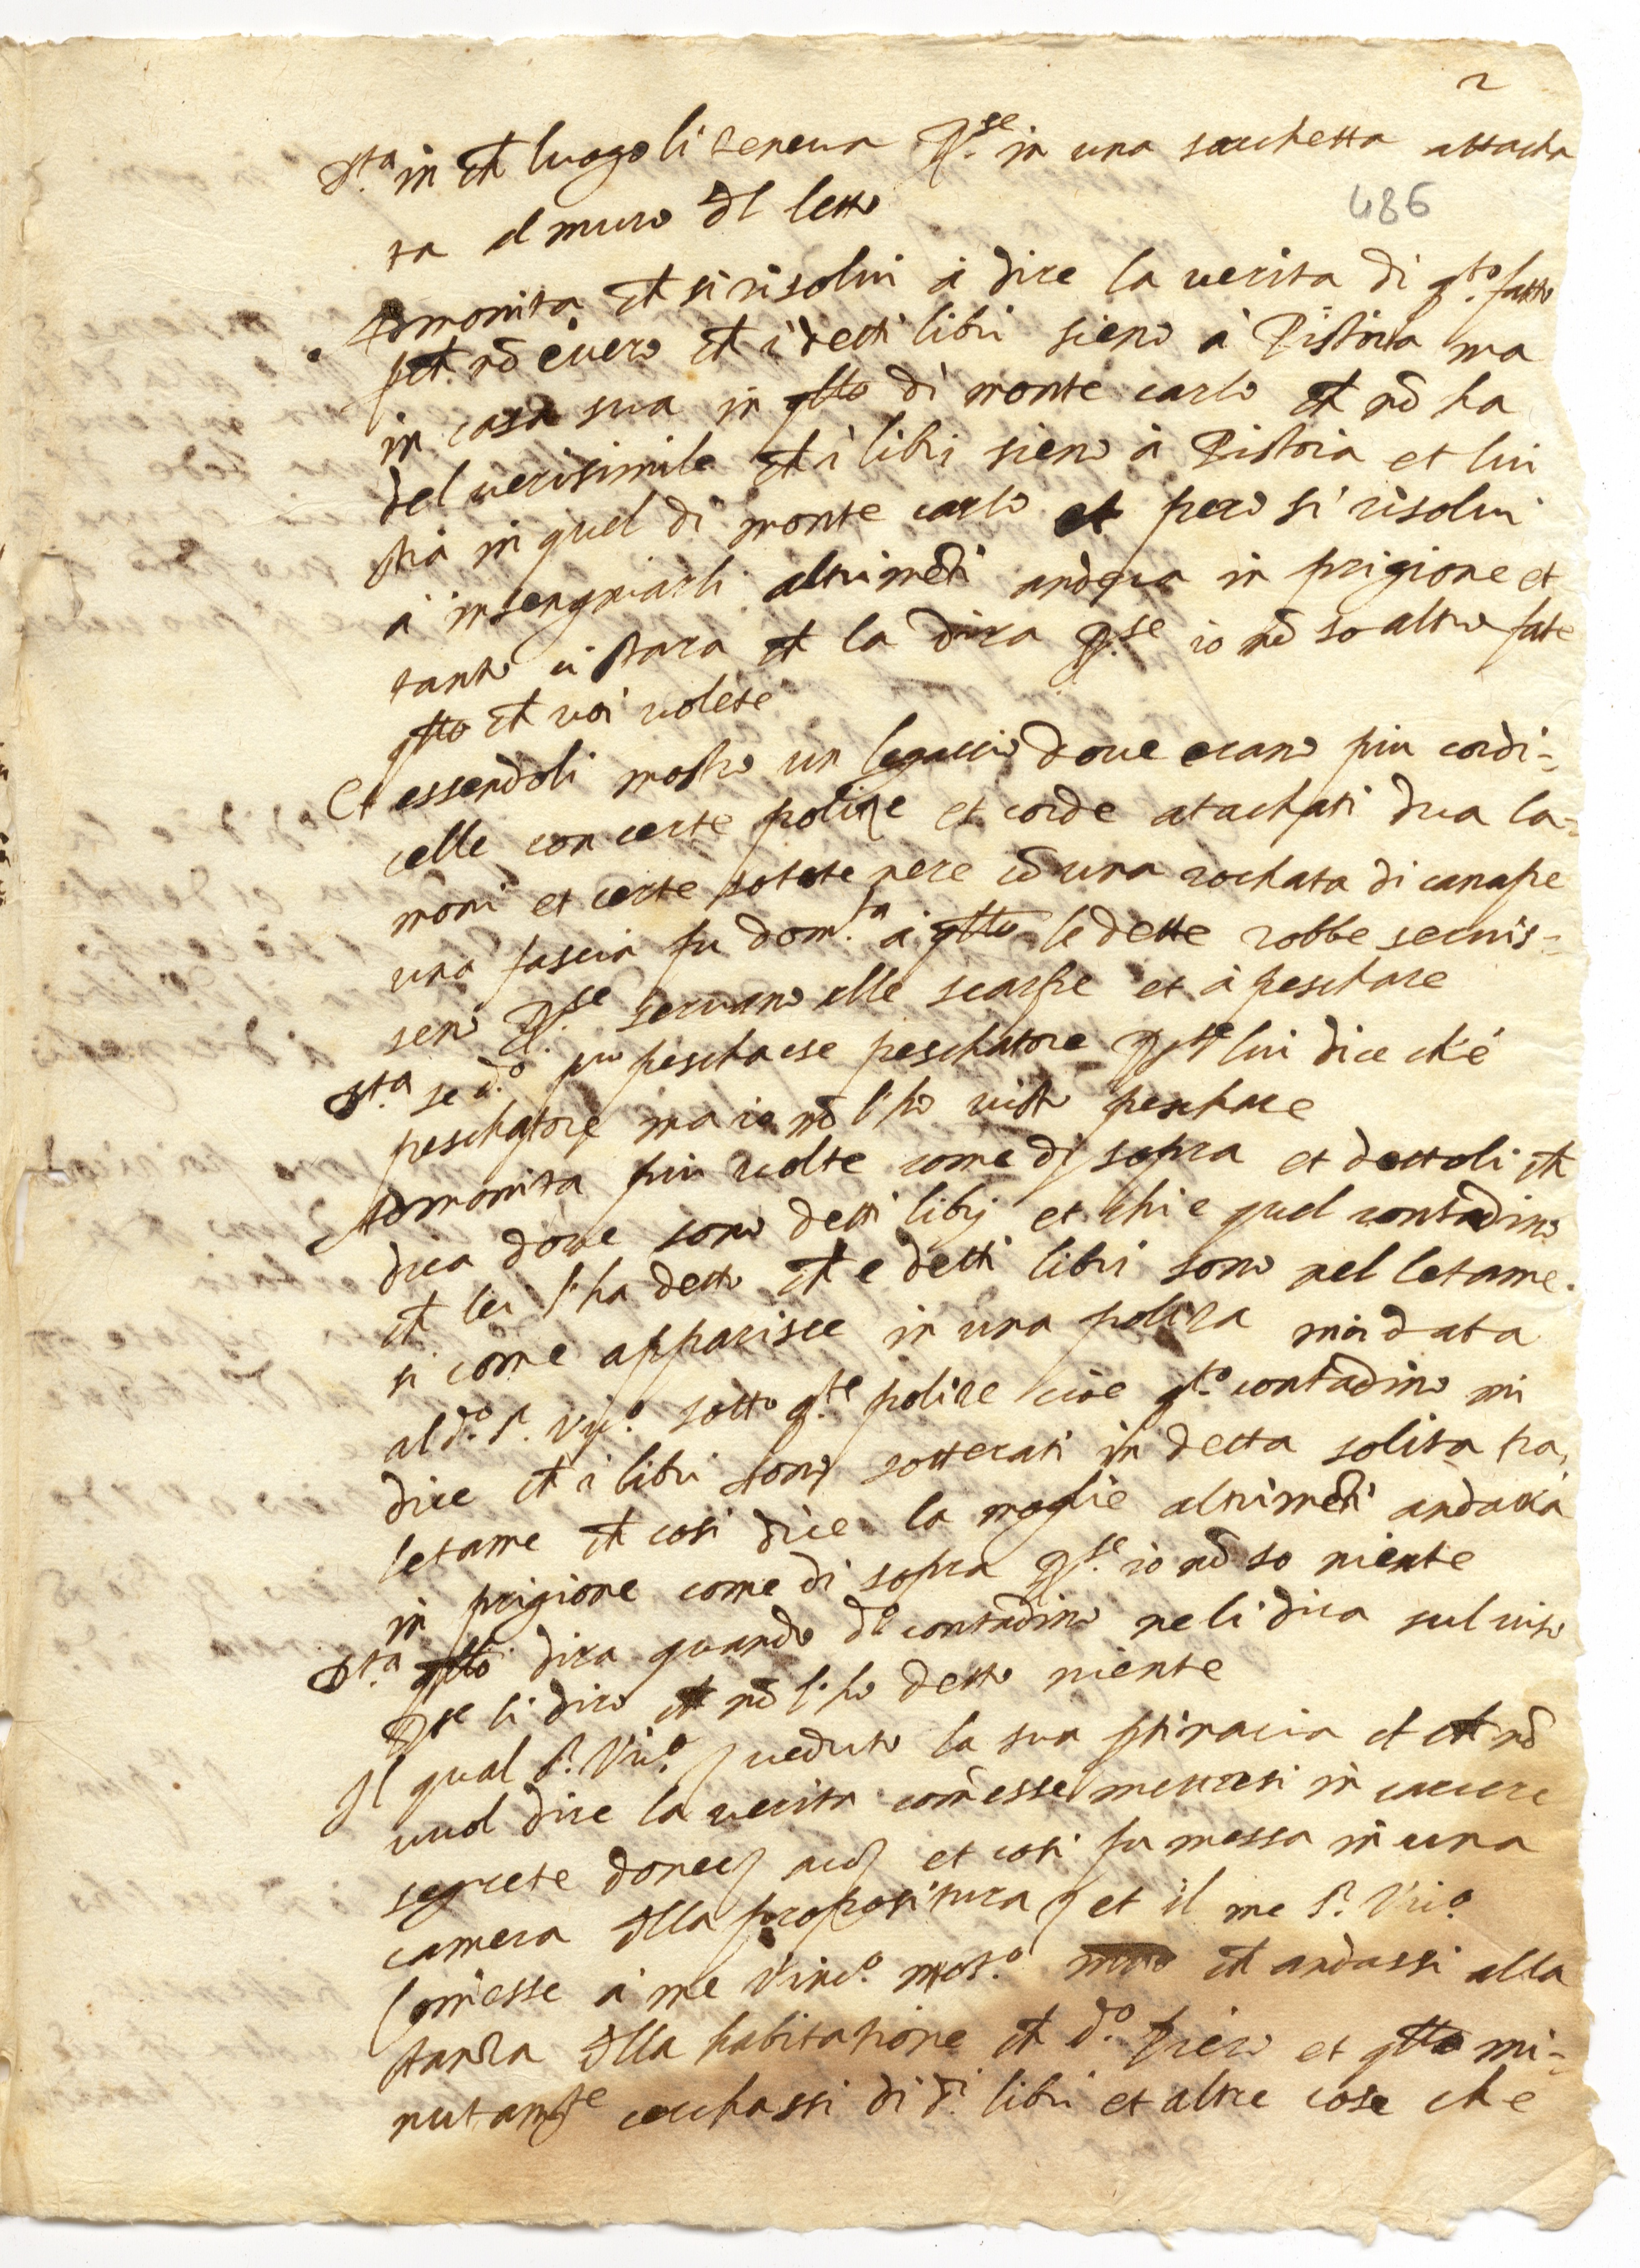 2
D.ta in ch luogo li teneva R.se in una sacchetta attacha
486
ta al muro dl letto
Admonita ch si risolvi à dire la verita di q.to fatto
pch nō è vero ch i detti libri sieno à Pistoia ma
in casa sua in qllo di monte carlo ch nō ha
del verisimile ch i libri sieno à Pistoia et lui
stia in quel di monte carlo et però si risolvi
à insegniarli altrimēti andera in prigione et
tanto ci stara ch la dira R.se io nō so altro fate
qllo ch voi volete
Et essendoli mostro un legaccio dove erano piu cordi=
celle con certe polize et corde atachati dua la=
moni et certe nere cō una rochata di canape
una fascia fu dom.ta à qllo le dette robbe servis=
seno R.se servano alle scarpe et à peschare
D.ta se d.o peschasse peschatore R.se lui dice ch'é
peschatore ma io nō l'ho visto peschare
Admonita piu volte come di sopra et dettoli ch
dica dove sono detti libri et chi e quel contadino
ch lei l'ha detto ch e detti libri sono nel letame
si come apparisce in una poliza mādata
al d.o S.r Vic.o sotto q.te polize cioè q.to contadino mi
dice ch i libri sono sotterati in detta solita
letame ch cosi dice la moglie altrimēti andara
in prigione come di sopra R.se io nō so niente
D.ta qllo dira quando d.o contadino ne li dica sul viso
R.se li dirò ch nō l'ho detto niente
Il qual S.r Vic.o veduto la sua ptinacia et ch nō
vuol dire la verita comesse mettersi in carcere
segrete donec et cosi fu messa in una
camera dlla propositura et il me S.r Vic.o
Comesse à me Vinc.o ch andassi alla
stanza dlla habitatione ch d.o Piero et qllo mi=
nutam.te cerchassi di d.i libri et altre cose che